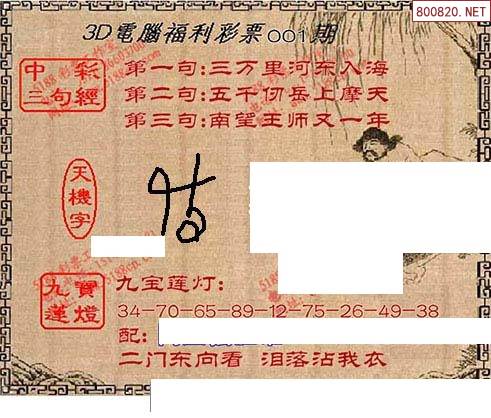 800820.NET
3D電腦福利彩票001期
中彩
三句經
第一句:三万里河东入海
第二句:五千仞岳上摩天
第三句:南望王师又一年
天機字
九寶
蓮燈
九宝莲灯:
34-70-65-89-12-75-26-49-38
配:
二门东向看 泪落沾我衣